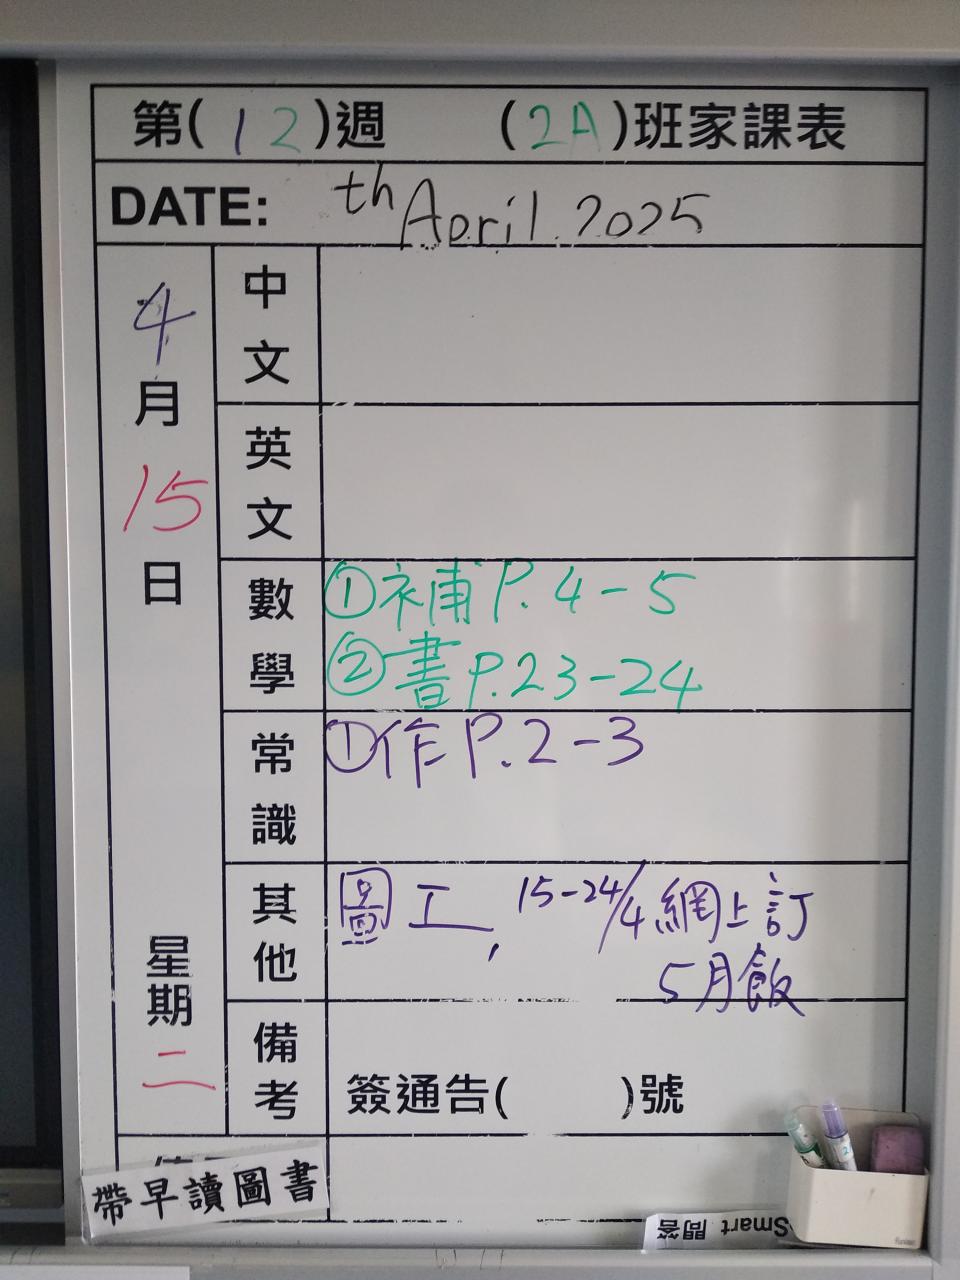 第(12)週 (2A)班家課表
DATE: th April 2025
4月15日 星期二
中文
英文
數學
①補P.4-5
②書P.23-24
常識
①作P.2-3
其他
圖工, 15-24/4 網上訂
5月飯
備考
簽通告( )號
帶早讀圖書
Smart 問答